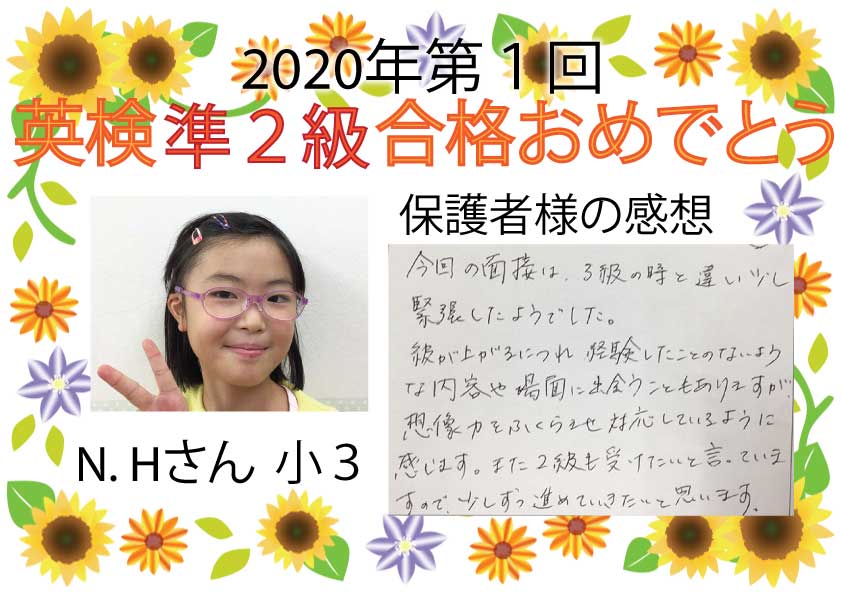 2020年第１回
英検準２級合格おめでとう
保護者様の感想
今回の面接は、3級の時と違い少し
緊張したようでした。
級が上がるにつれ 経験したことのないよう
な内容や場面に出会うこともありますが、
想像力をふくらませ 対応しているように
感じます。また2級も受けたいと言っていま
すので、少しずつ進めていきたいと思います。
N. Hさん 小３